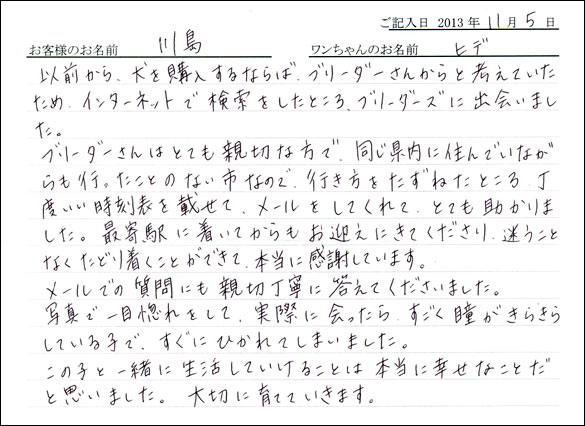 ご記入日 2013年11月5日
お客様のお名前 川島 ワンちゃんのお名前 ヒデ
以前から、犬を購入するならば、ブリーダーさんからと考えていた
ため、インターネットで検索をしたところ、ブリーダーズに出会いまし
た。
ブリーダーさんはとても親切な方で、同じ県内に住んでいなが
らも行ったことのない市なので、行き方をたずねたところ、丁
度いい時刻表を載せて、メールをしてくれて、とても助かりま
した。最寄駅に着いてからもお迎えにきてくださり、迷うこと
なくたどり着くことができて、本当に感謝しています。
メールでの質問にも親切丁寧に答えてくださいました。
写真で一目惚れをして、実際に会ったら、すごく瞳がきらきら
している子で、すぐにひかれてしまいました。
この子と一緒に生活していけることは本当に幸せなことだ
と思いました。大切に育てていきます。